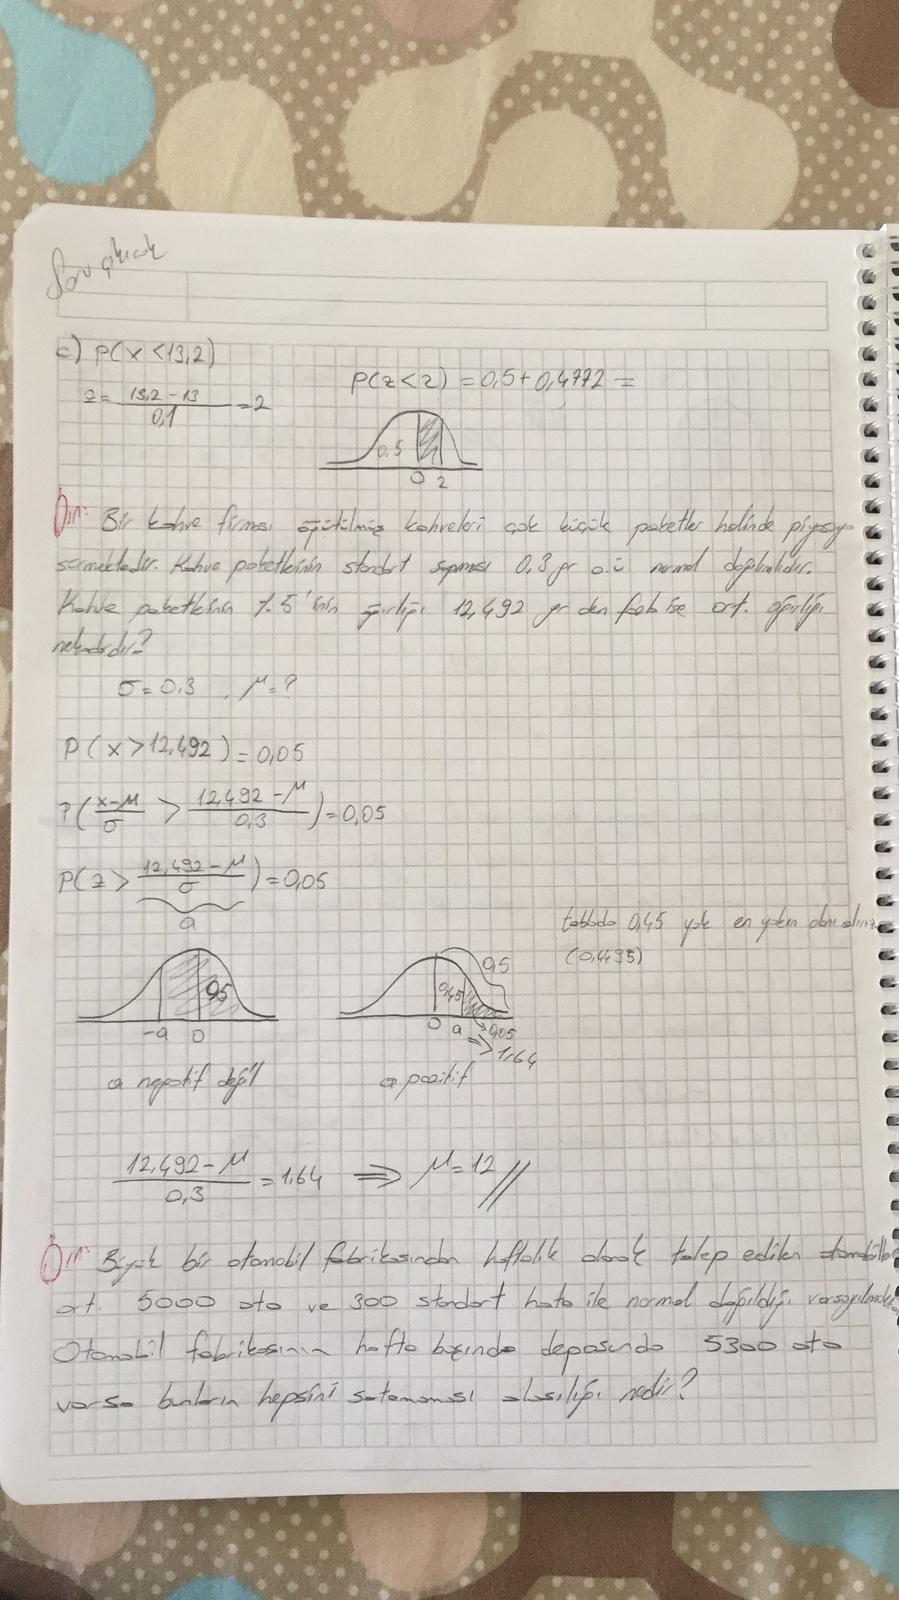 Soru çıkcak
c) P(x<13,2)
z = (13,2 - 13)/0,1 = 2
P(z<2) = 0,5 + 0,4772 =
0,5
0 2
Örn: Bir kahve firması öğütülmüş kahveleri çok küçük paketler halinde piyasaya
sürmektedir. Kahve paketlerinin standart sapması 0,3 gr o.ü normal dağılımlıdır.
Kahve paketlerinin %5'inin ağırlığı 12,492 gr den fazla ise ort. ağırlığı
nekadardır?
σ = 0,3 , μ = ?
P(x > 12,492) = 0,05
P((x-μ)/σ > (12,492 - μ)/0,3) = 0,05
P(z > (12,492 - μ)/σ) = 0,05
a
tabloda 0,45 yok en yakın olanı alınız
(0,4495)
0,5
-a 0
a negatif değil
0,5
0,45
0 a 0,05
⇒ 1,64
a pozitif
(12,492 - μ)/0,3 = 1,64 ⇒ μ = 12 //
Örn: Büyük bir otomobil fabrikasından haftalık olarak talep edilen otomobiller
ort. 5000 oto ve 300 standart hata ile normal dağıldığı varsayılmakta
Otomobil fabrikasının hafta başında deposunda 5300 oto
varsa bunların hepsini satamaması olasılığı nedir?